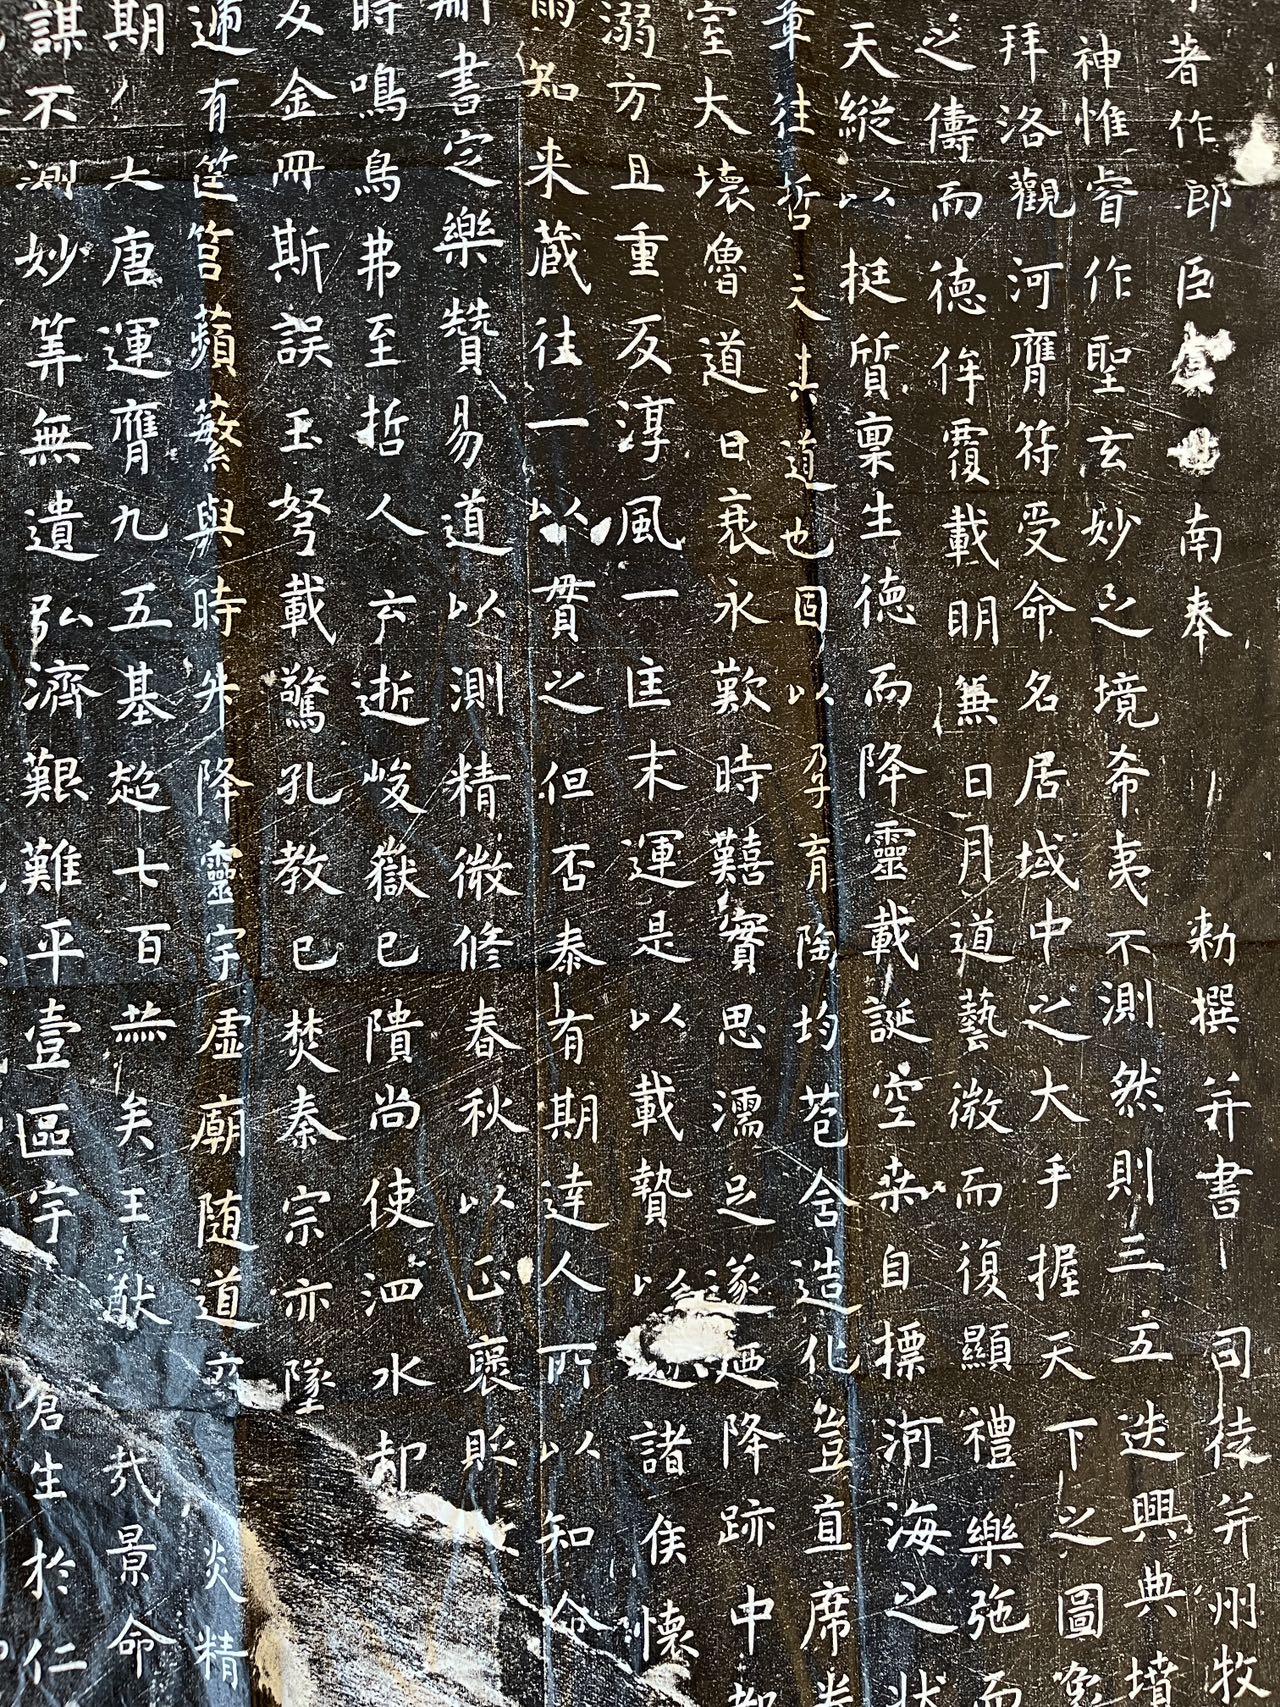 著作郎臣虞世南奉　敕撰并書　司徒并州牧
神惟睿作聖玄妙之境希夷不測然則三五迭興典墳
拜洛觀河膺符受命名居域中之大手握天下之圖象
之儔而德侔覆載明無日月道藝微而復顯禮樂弛而
天縱以挺質稟生德而降靈載誕空桑自標河海之狀
章往哲夫其道也固以孕育陶均苞含造化豈直席卷
室大壞魯道日衰永歎時艱實思濡足遂迺降跡中都
溺方且重反淳風一匡末運是以載贄以適諸侯懷
雨知来藏往一以貫之但否泰有期達人所以知命
刪書定樂贊易道以測精微修春秋以正褒貶
時鳴鳥弗至哲人云逝峻嶽已隤尚使泗水却
及金冊斯誤玉弩載驚孔教已焚秦宗亦墜
遞有筐筥蘋蘩與時升降靈宇虛廟隨道廢　炎精
期大唐運膺九五基超七百赫矣王猷　哉景命
謀不測妙筭無遺弘濟艱難平壹區宇　蒼生於仁